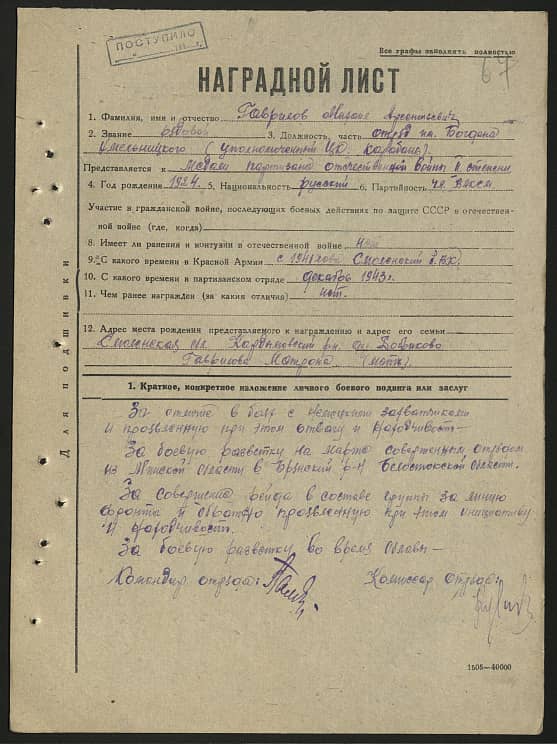 ПОСТУПИЛО
Все графы заполнять полностью
67
НАГРАДНОЙ ЛИСТ
1. Фамилия, имя и отчество Гаврилов Михаил Арсентьевич
2. Звание рядовой 3. Должность, часть отряд им. Богдана
Хмельницкого (уполномоченный ЦК
Представляется к Медали партизана отечественной войны II степени
4. Год рождения 1924. 5. Национальность русский 6. Партийность чл. ВЛКСМ
Участие в гражданской войне, последующих боевых действиях по защите СССР и отечествен-
ной войне (где, когда)
8. Имеет ли ранения и контузии в отечественной войне нет
9. С какого времени в Красной Армии с 1941 Смоленский
10. С какого времени в партизанском отряде декабрь 1943 г.
11. Чем ранее награжден (за какия отличия) нет.
12. Адрес места рождения представляемого к награждению и адрес его семьи
Смоленская обл.
Гаврилова Матрона (мать)
Для подшивки
1. Краткое, конкретное изложение личного боевого подвига или заслуг
За отличие в боях с немецкими захватчиками
и проявленную при этом отвагу и находчивость—
За боевую разветку на марше совершенным отрядом
из Минской области в р-н Белостокской области.
За совершение рейда в составе группы за линию
фронта и обратно проявленную при этом инициативу
и находчивость.
За боевую разветку во время блокады—
Командир отряда: Комиссар отряда:
1505—40000